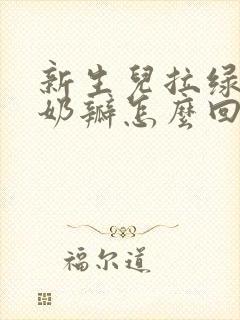 新生兒拉绿
奶瓣怎麼回
福尔道